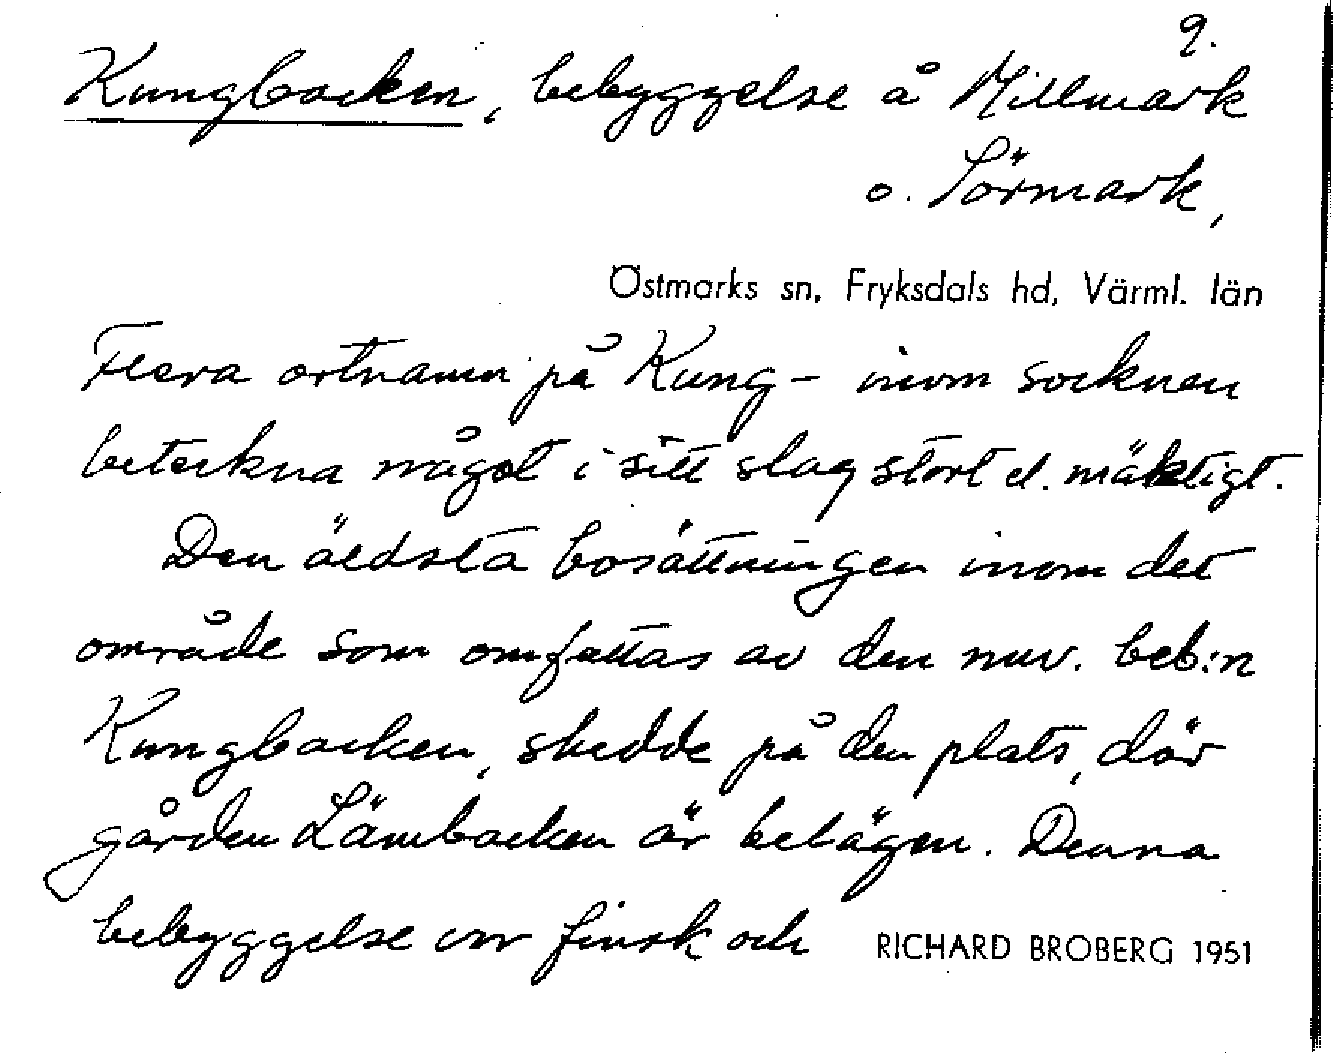 9.
Kungbacken, bebyggelse å Millmark
o. Sörmark,
Östmarks sn, Fryksdals hd, Värml. län
Flera ortnamn på Kung- inom socknen
beteckna något i sitt slag stort el. mäktigt.
Den äldsta bosättningen inom det
område som omfattas av den nuv. beb:n
Kungbacken, skedde på den plats, där
gården Lämbacken är belägen. Denna
bebyggelse var finsk och
RICHARD BROBERG 1951